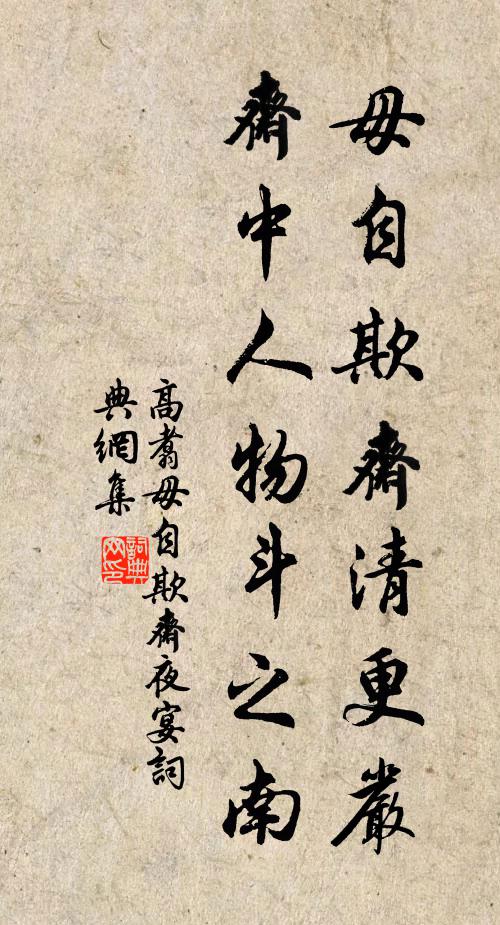 毋自欺齋清更嚴
齋中人物斗之南
高翥毋自欺齋夜宴詞
典網集
詞典
网印